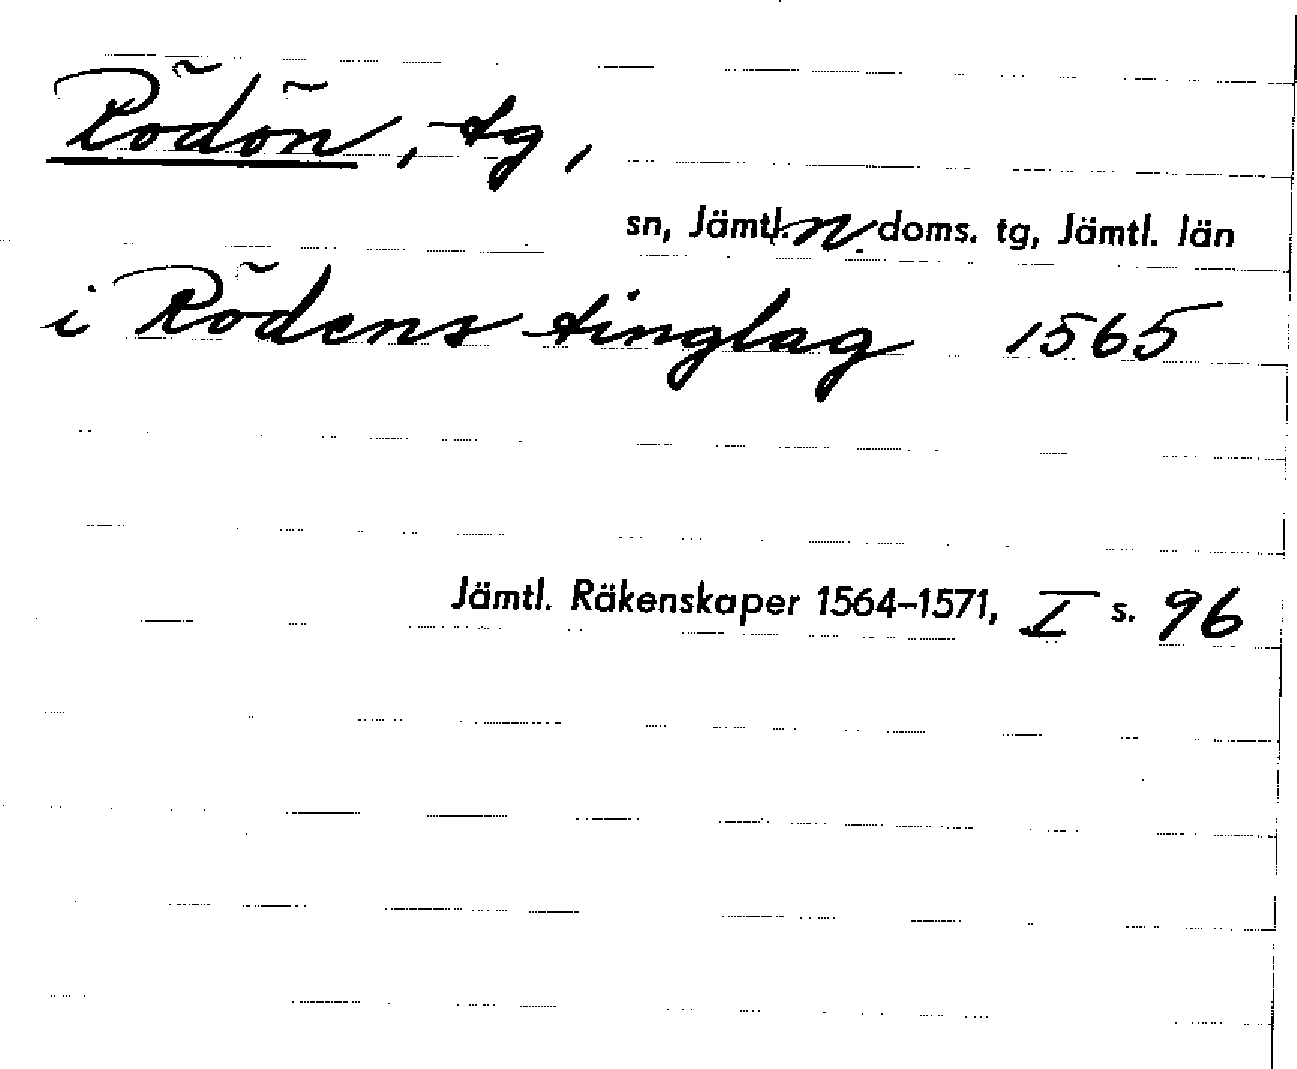 Rödön, tg,
sn, Jämtl. n. doms. tg, Jämtl. län
i Rödens tinglag 1565
Jämtl. Räkenskaper 1564–1571, I s. 96